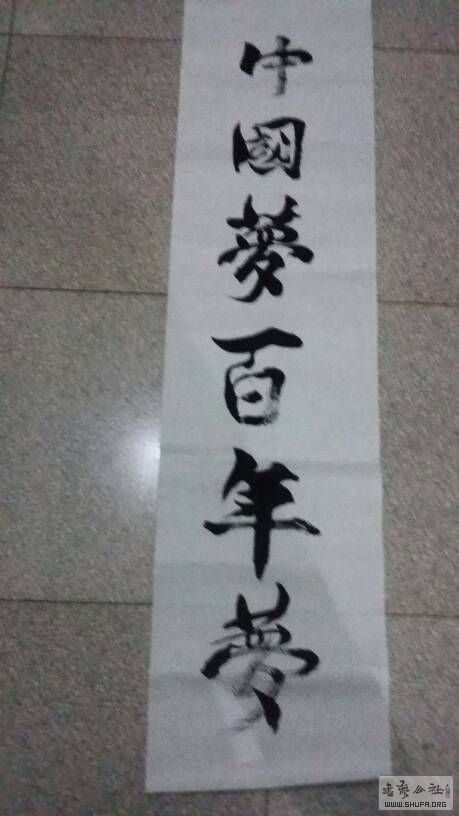 中國夢百年夢
書藝公社
WWW.SHUFA.ORG